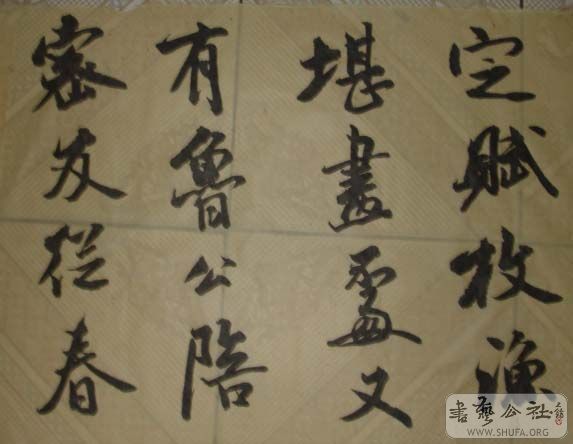 定賦枚漁
堪畫處又
有魯公陪
密友從春
書藝公社
WWW.SHUFA.ORG